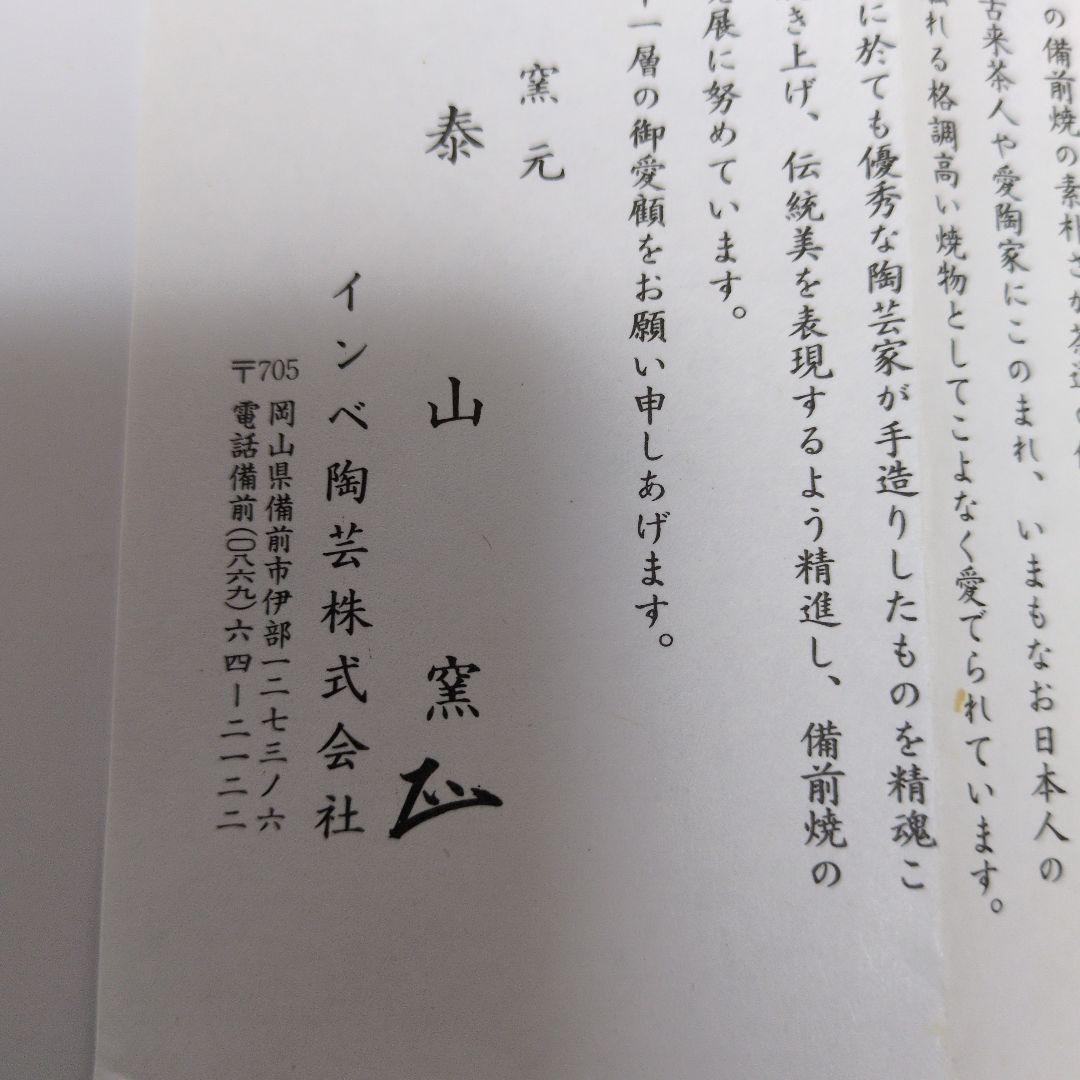 の備前焼の素朴さが茶道の
古来茶人や愛陶家にこのまれ、いまもなお日本人の
れる格調高い焼物としてこよなく愛でられています。
に於ても優秀な陶芸家が手造りしたものを精魂こ
き上げ、伝統美を表現するよう精進し、備前焼の
展に努めています。
一層の御愛顧をお願い申しあげます。
窯元
泰山窯
インベ陶芸株式会社
〒705 岡山県備前市伊部一二七三ノ六
電話備前(〇八六九)六四ー二一二二